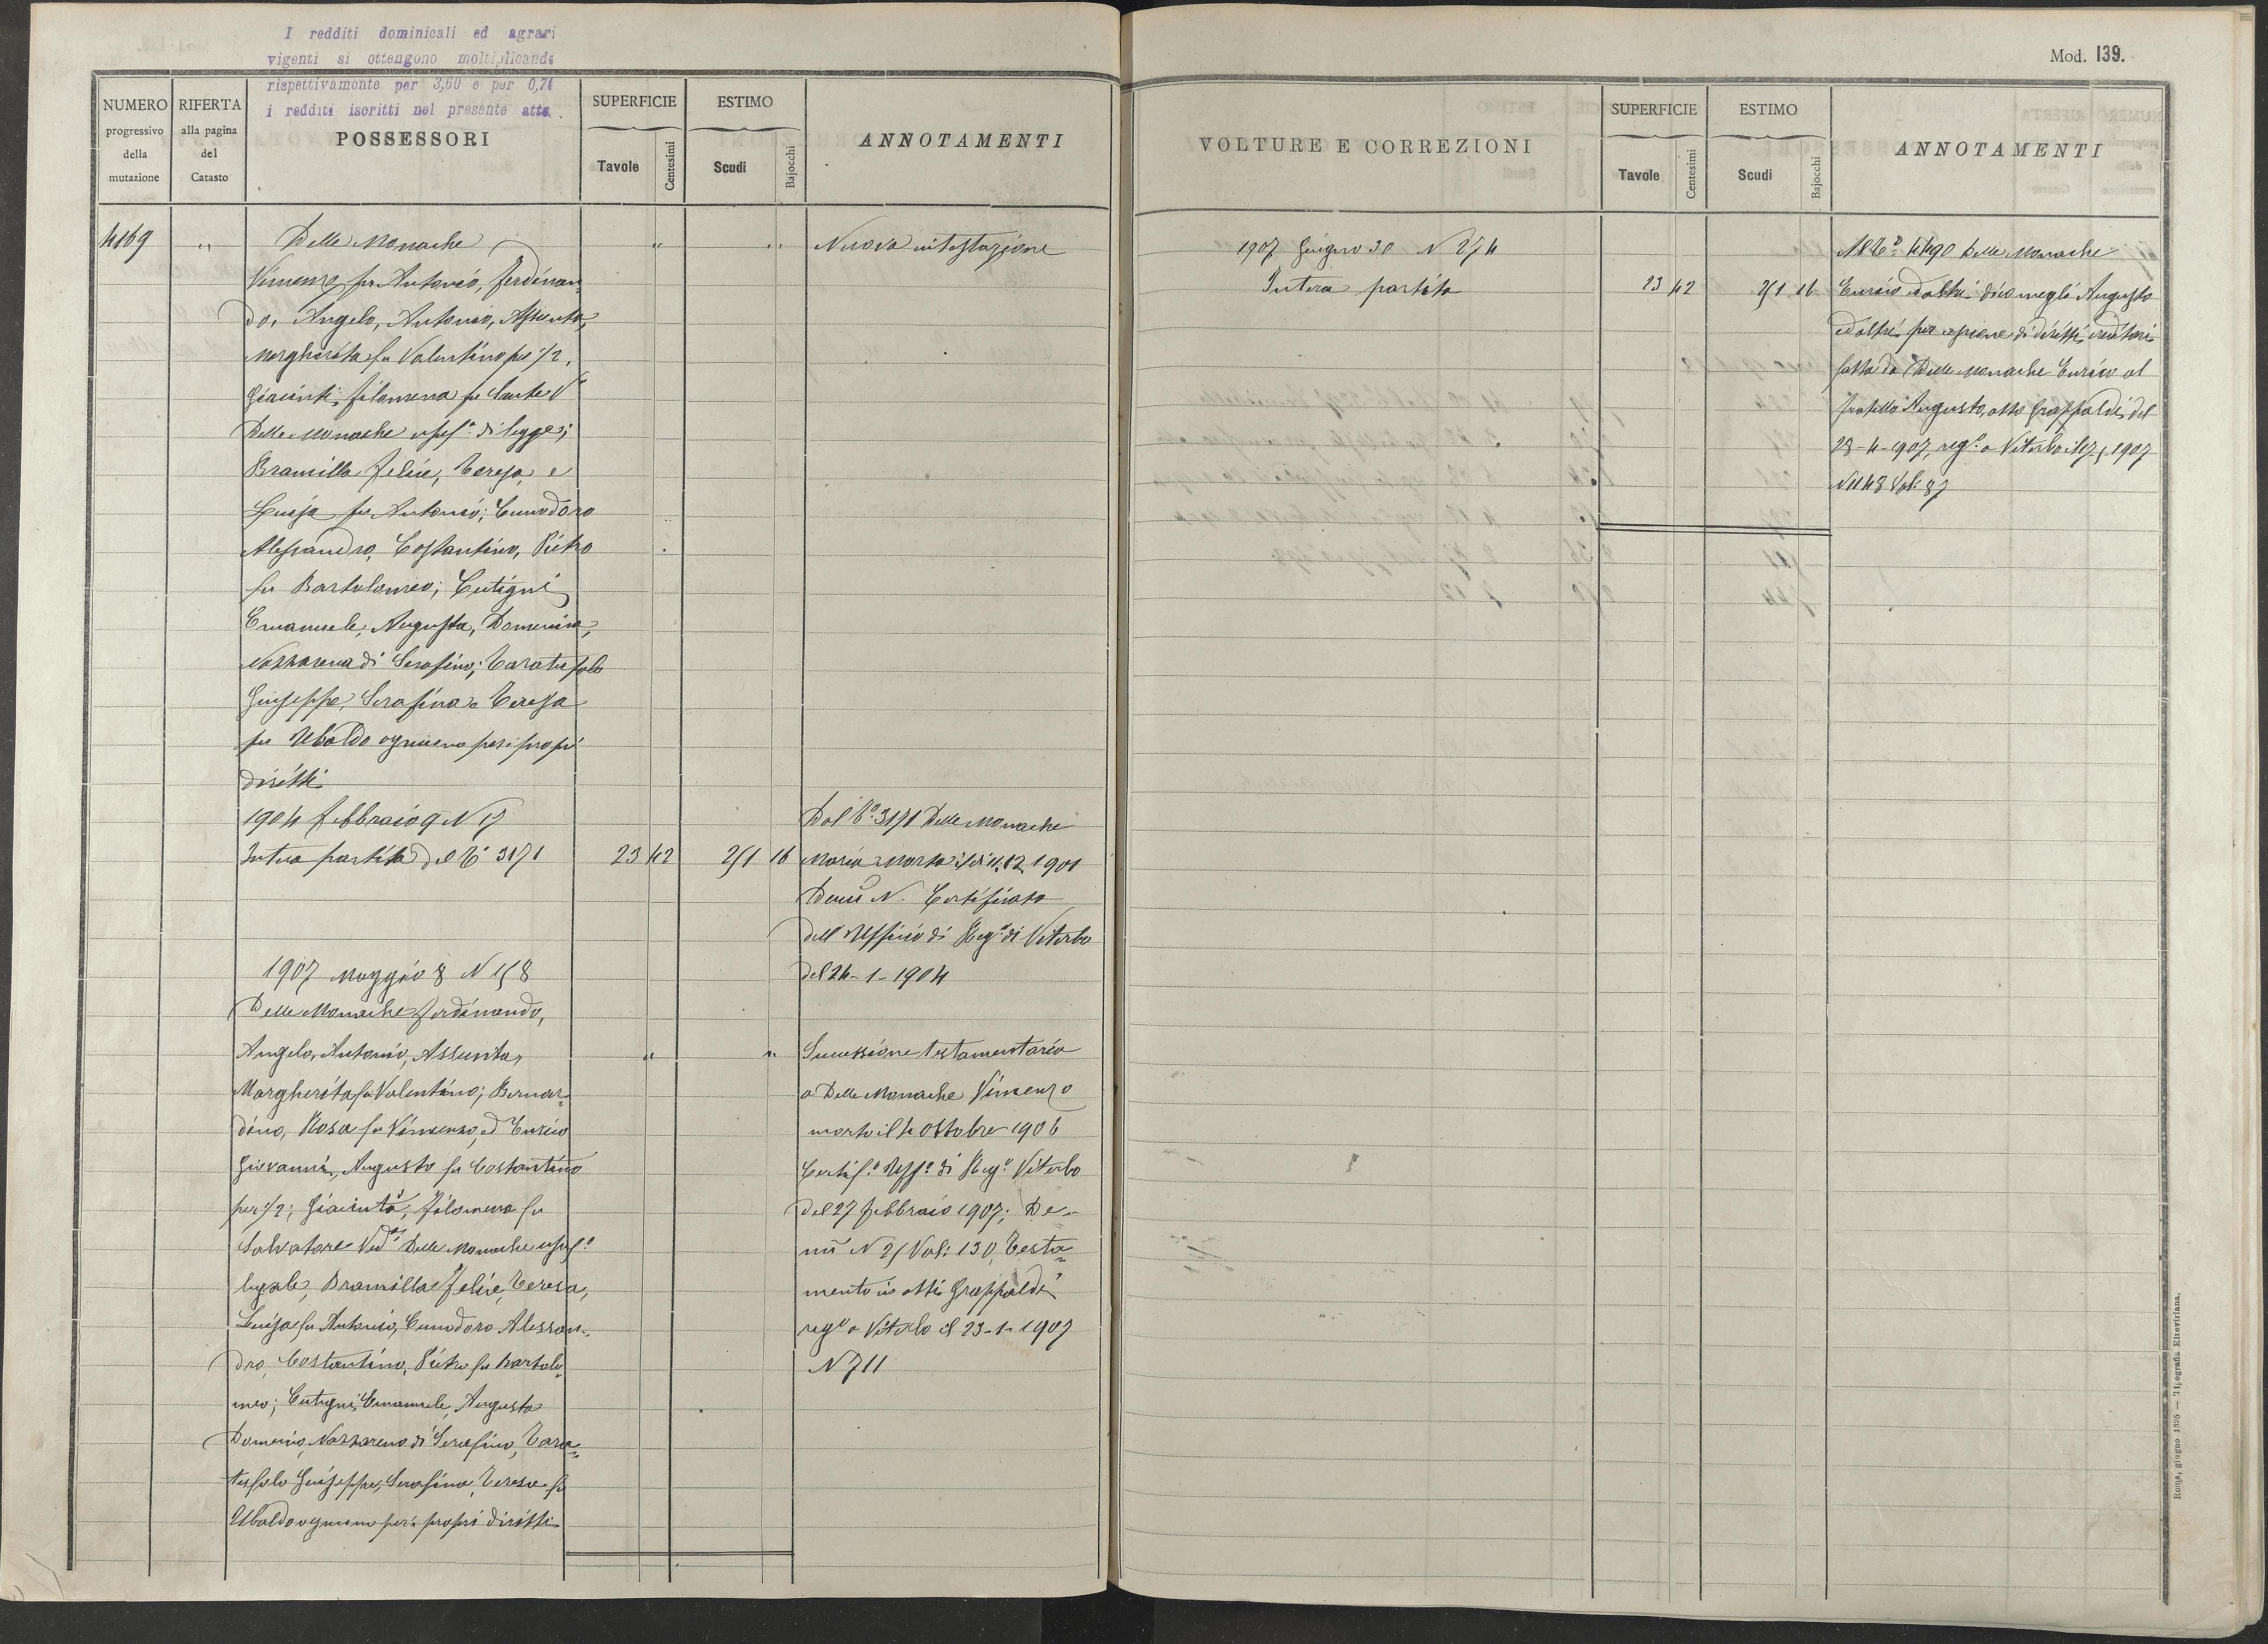 I redditi dominicali ed agrari
vigenti si ottengono moltiplicando
rispettivamente per 3,60 e per 0,7
i redditi iscritti nel presente atto.
Mod. 139.
NUMERO
progressivo
della
mutazione
RIFERTA
alla pagina
del
Catasto
POSSESSORI
SUPERFICIE
Tavole
Centesimi
ESTIMO
Scudi
Bajocchi
ANNOTAMENTI
4169 " Delle Monache " " Nuova intestazione
Vincenzo fu Antonio, Ferdinan
do, Angelo, Antonio, Assunta,
Margherita fu Valentino per 1/2,
Giacinti Filomena fu
Delle Monache usuf.ª di legge;
Bramilla Felice, Teresa, e
Luisa fu Antonio; Cunodoro
Alessandro, Costantino, Pietro
fu Bartolomeo; Cutigni
Emanuele, Augusta, Domenico,
Nazzarena di Serafino; Taratufolo
Giuseppe, Serafina e Teresa
fu Ubaldo ognuno per i propri
diritti
1904 febbraio 9 N 17
Intera partita del T.º 3171 23 42 251 16
Dal T.º 3171 Delle Monache
Maria morta 1901
N. Certificato
dell'Ufficio di Reg.º di Viterbo
del 24-1-1904
1907 Maggio 8 N 158
Delle Monache Ferdinando,
Angelo, Antonio, Assunta, " "
Margherita fu Valentino; Bernar
dino, Rosa fu Vincenzo, ed Curzio
Giovanni, Augusto fu Costantino
per 1/2; Giacinta, Filomena fu
Salvatore Ved.ª Delle Monache usuf.ª
legale, Bramilla Felice, Teresa,
Luisa fu Antonio, Cunodoro Alessan
dro, Costantino, Pietro fu Bartolo
meo; Cutigni Emanuele, Augusta
Domenico, Nazzareno di Serafino, Tara
tufolo Giuseppe, Serafina, Teresa fu
Ubaldo ognuno per i propri diritti
Successione testamentaria
a Delle Monache Vincenzo
morto il 4 Ottobre 1906
Certif.º Uff.º di Reg.º Viterbo
del 27 febbraio 1907; De-
nũ N 25 Vol: 130, Testa
mento in atti Grappaldi
reg.º a Viterbo il 23-1-1907
N 711
VOLTURE E CORREZIONI
SUPERFICIE
Tavole
Centesimi
ESTIMO
Scudi
Bajocchi
ANNOTAMENTI
1907 Giugno 30 N 274
Intera partita 23 42 251 16
Al T.º 4490 Delle Monache
Curzio ed altri dico meglio Augusto
ed altri per cessione di diritti ereditari
fatta da Delle Monache Curzio al
fratello Augusto, atto Grappaldi del
28-4-1907, reg.º a Viterbo il 17 5 1907
N 1148 Vol. 87
Roma, giugno 1895 — Tipografia Elzeviriana.